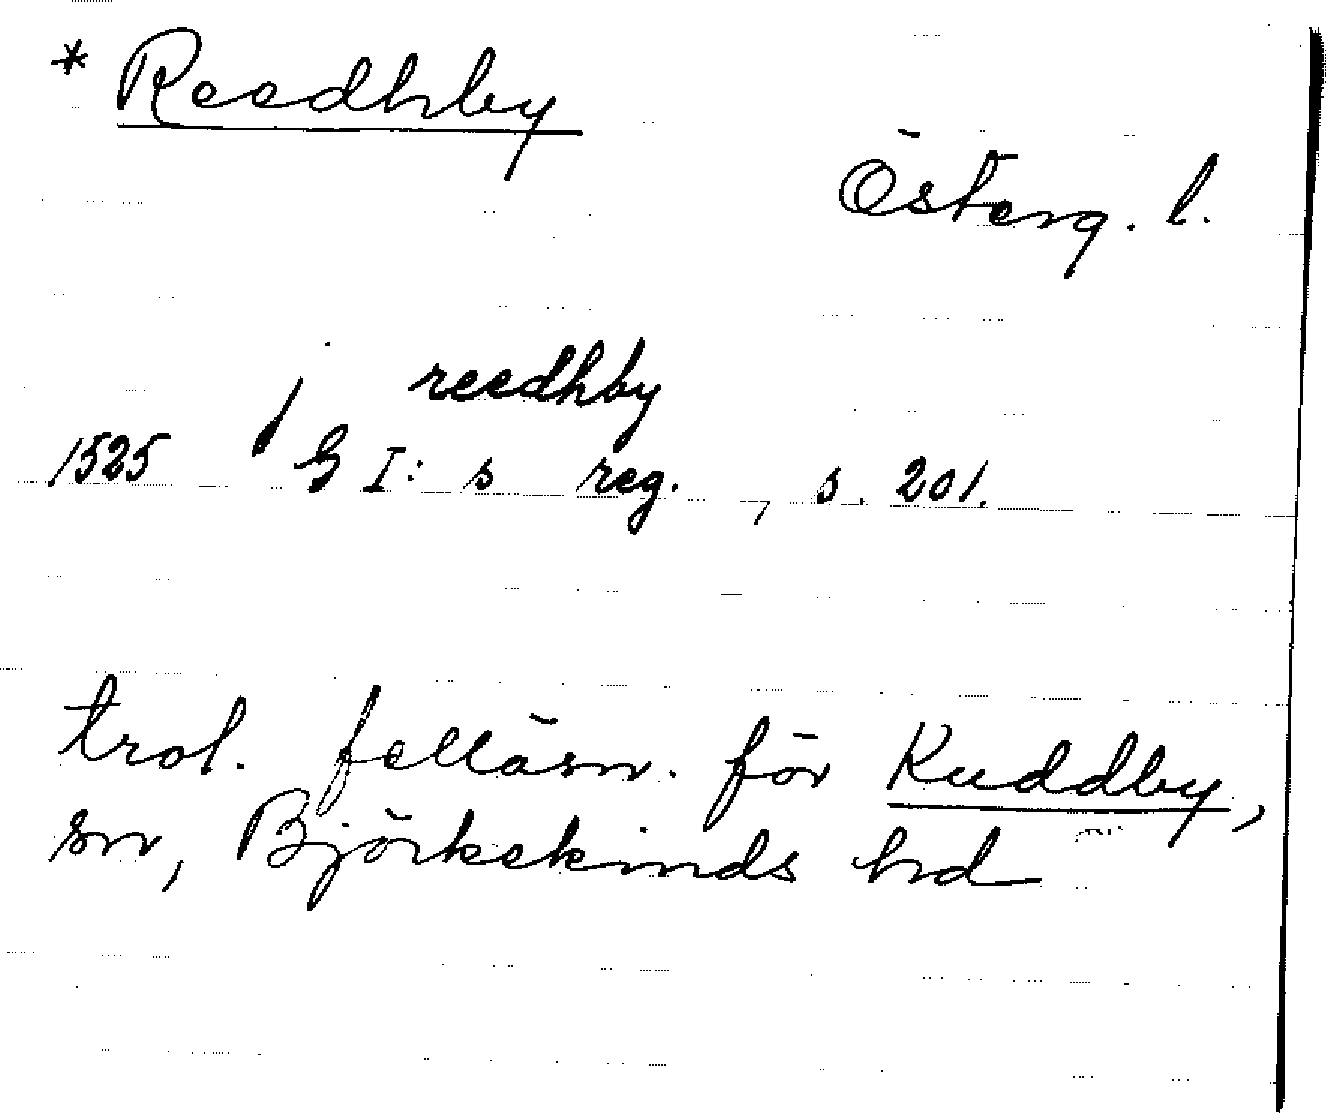 * Reedhby
Österg. l.
reedhby
1525 G I: s reg., s. 201.
trol. felläsn. för Kuddby,
sn, Björkekinds hd